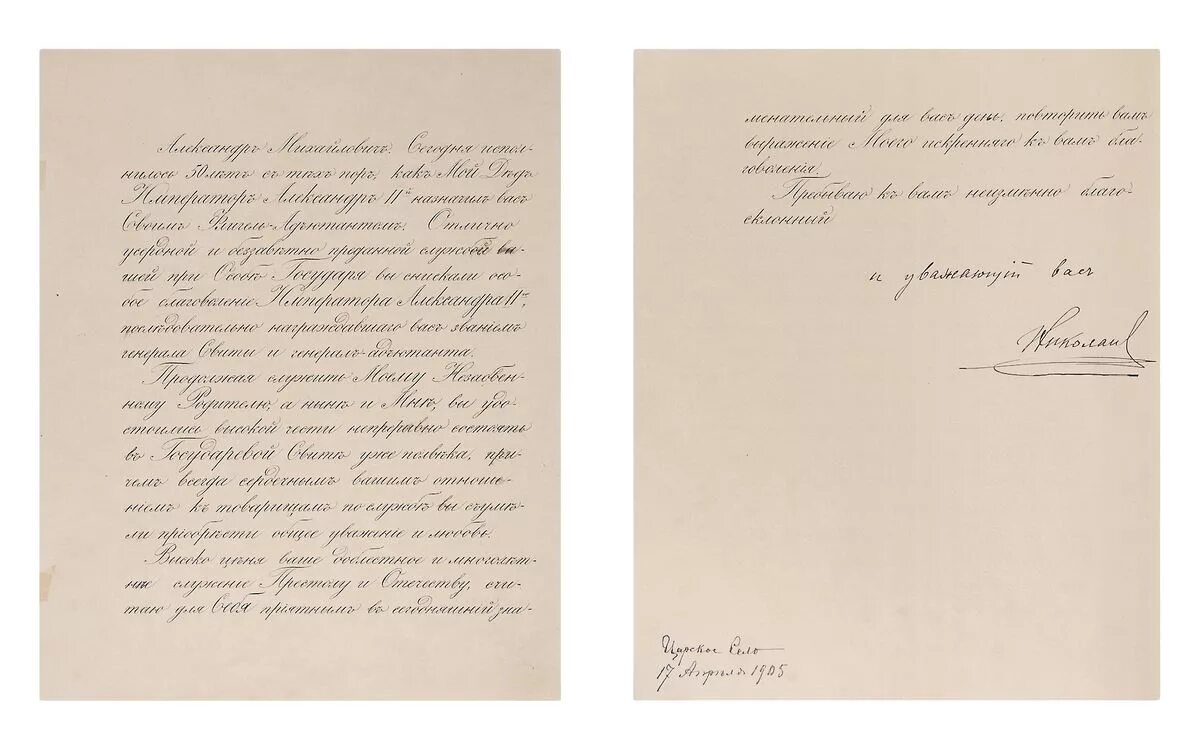 Александръ Михайловичъ. Сегодня испол-
нилось 50 лѣтъ съ тѣхъ поръ, какъ Мой Дѣдъ
Императоръ Александръ IIй назначилъ васъ
Своимъ Флигель-Адъютантомъ. Отлично
усердной и беззавѣтно преданной службой ва-
шей при Особѣ Государя вы снискали осо-
бое благоволеніе Императора Александра IIго,
послѣдовательно награждавшаго васъ званіемъ
генерала Свиты и генералъ-адъютанта.
Продолжая служить Моему Незабвен-
ному Родителю, а нынѣ и Мнѣ, вы удо-
стоились высокой чести непрерывно состоять
въ Государевой Свитѣ уже полвѣка, при-
чемъ всегда сердечнымъ вашимъ отноше-
ніемъ къ товарищамъ по службѣ вы съумѣ-
ли пріобрѣсти общее уваженіе и любовь.
Высоко цѣня ваше доблестное и многолѣт-
нѣе служеніе Престолу и Отечеству, счи-
таю для Себя пріятнымъ въ сегодняшній зна-
менательный для васъ день, повторить вамъ
выраженіе Моего искренняго къ вамъ бла-
говоленія.
Пребываю къ вамъ неизмѣнно благо-
склонный
и уважающій васъ
Николай
Царское Село
17 Апрѣля 1905